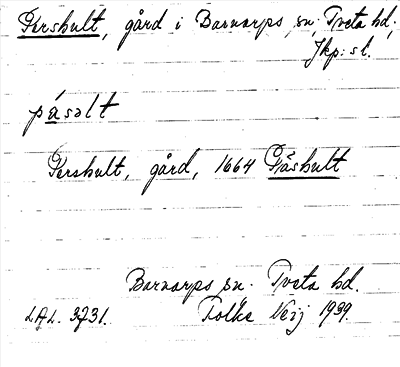 Pershult, gård i Barnarps sn; Tveta hd;
Jkp: sl.
pásəlt
Pershult, gård, 1664 Påshult
Barnarps sn. Tveta hd.
LAL. 3731. Folke Neij 1939.